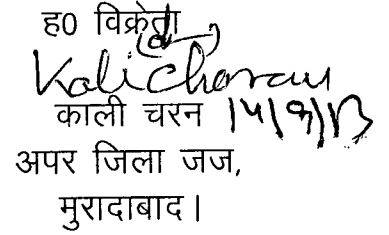 ह0 विक्रेता
Kali Charan
काली चरन
अपर जिला जज,
मुरादाबाद।